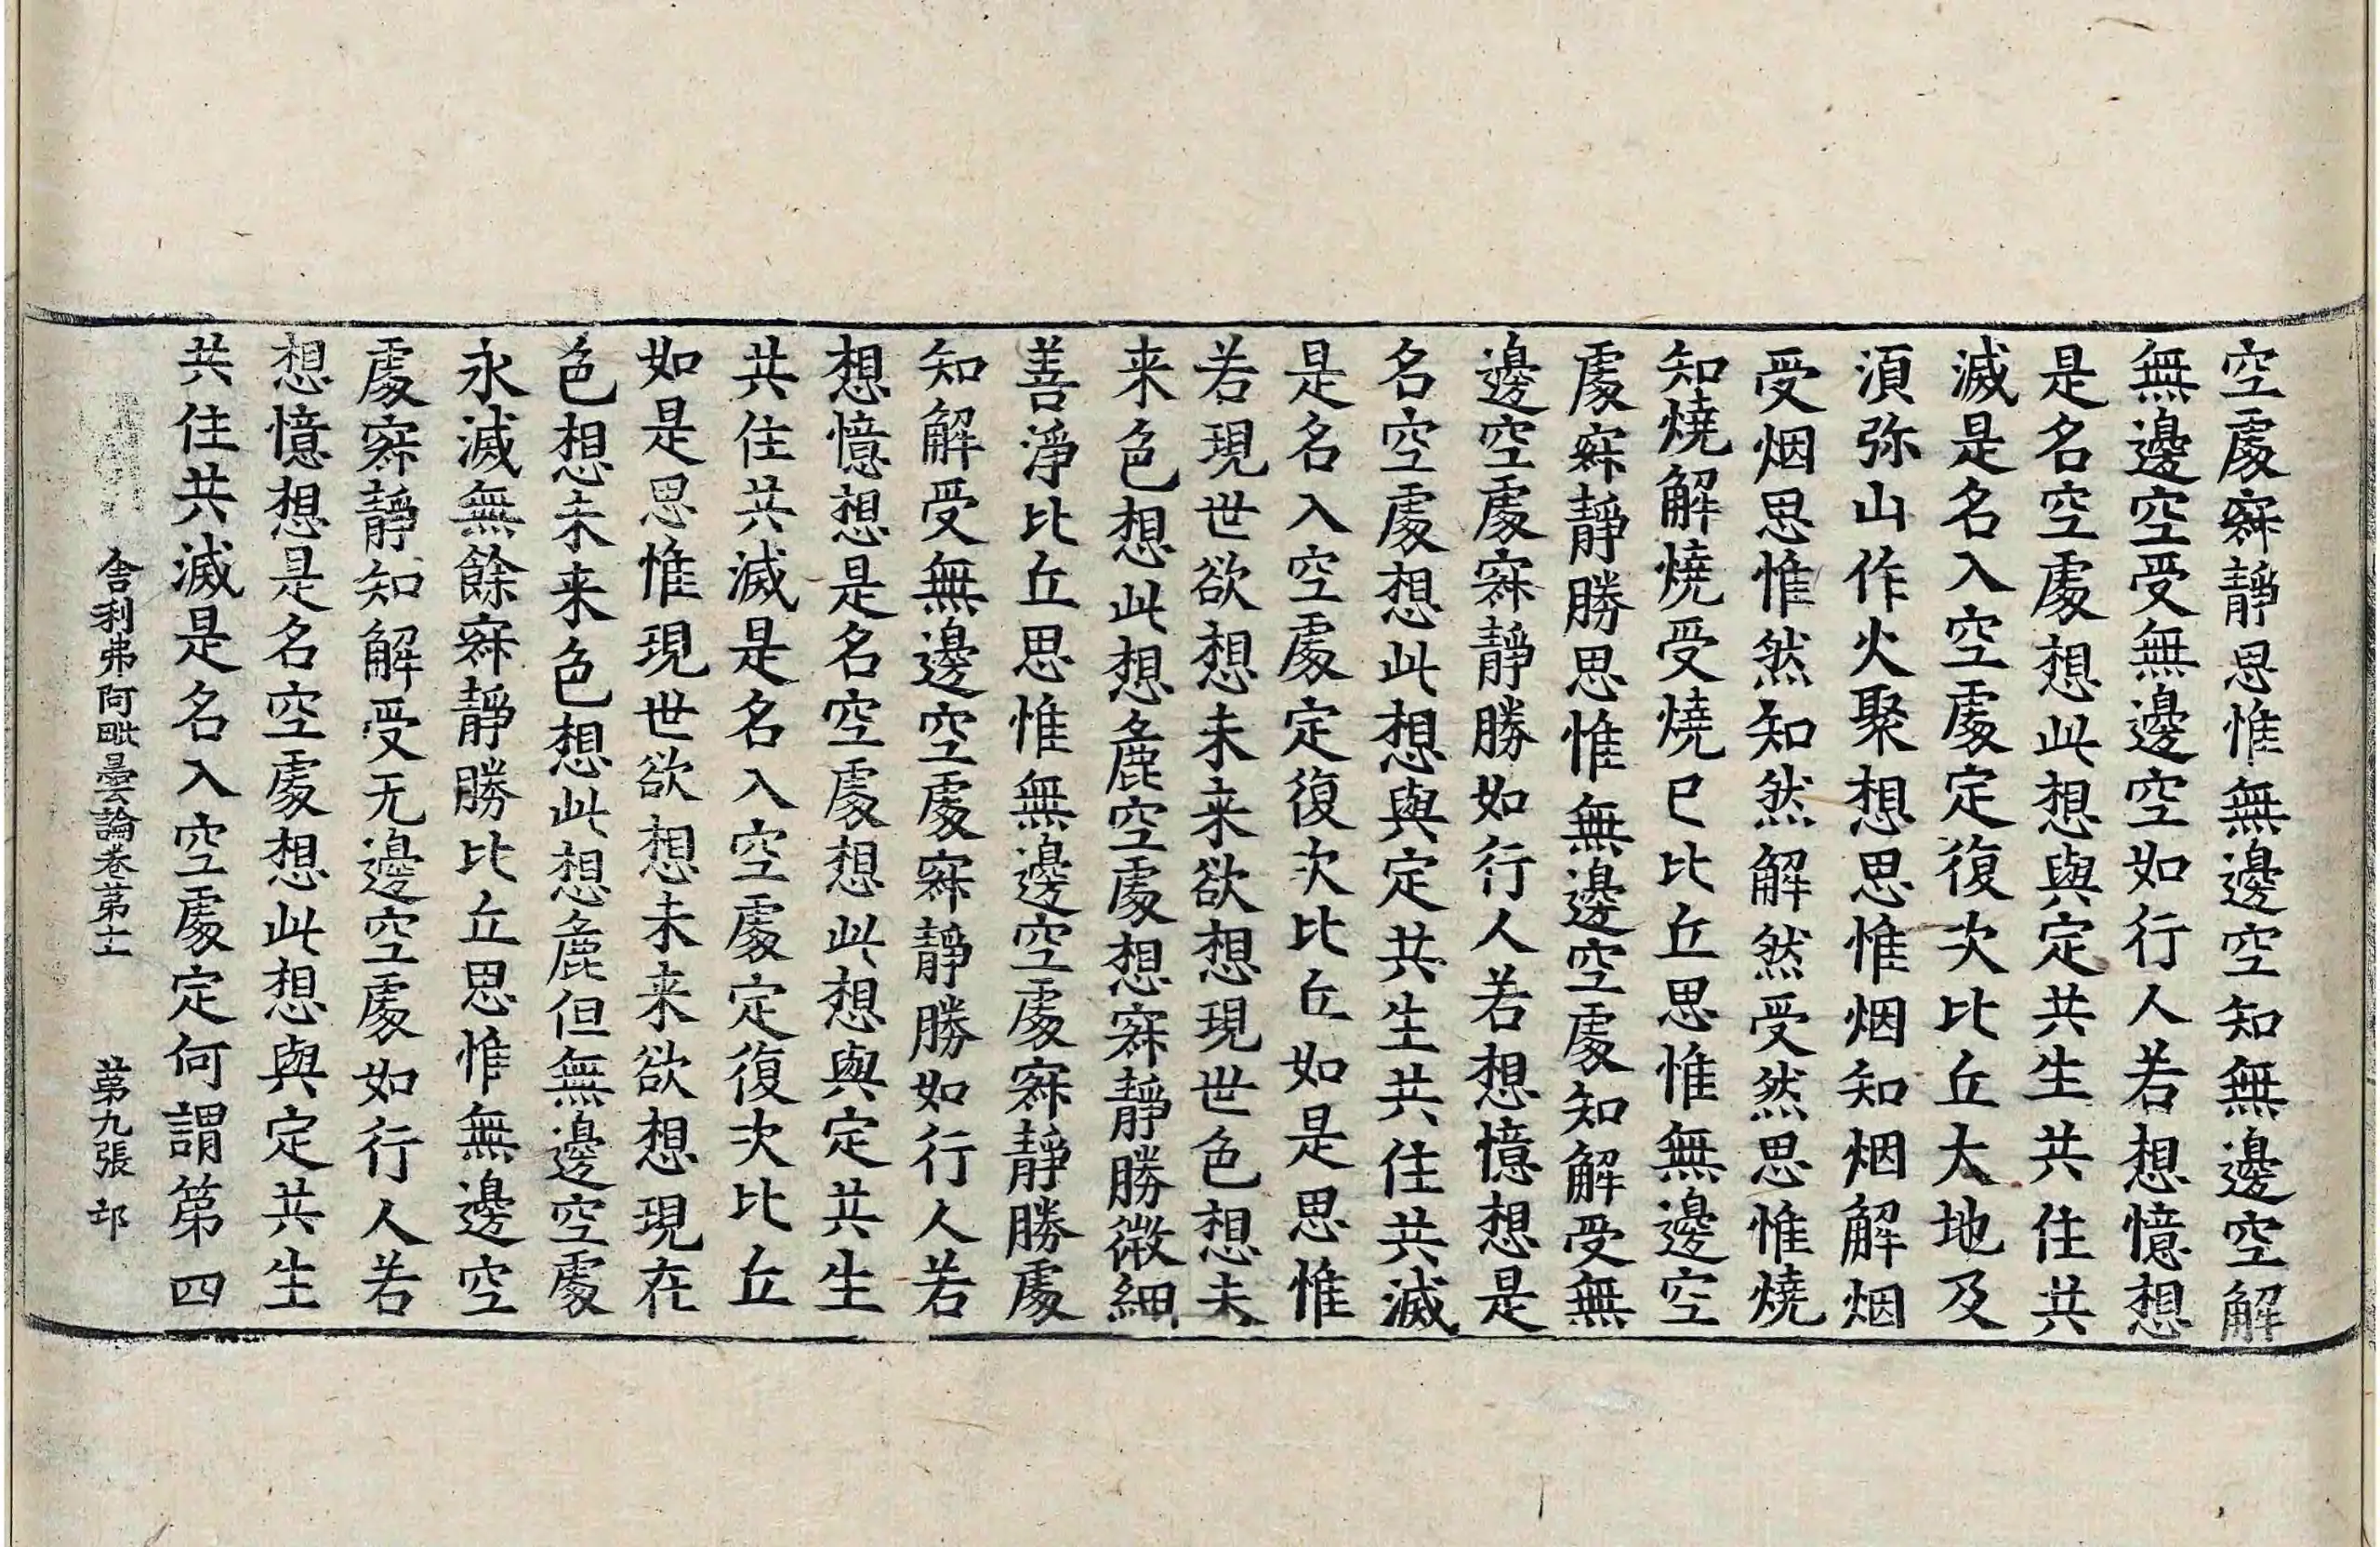 空處寂靜思惟無邊空知無邊空解
無邊空受無邊空如行人若想憶想
是名空處想此想與定共生共住共
滅是名入空處定復次比丘大地及
須弥山作火聚想思惟烟知烟解烟
受烟思惟然知然解然受然思惟燒
知燒解燒受燒已比丘思惟無邊空
處寂靜勝思惟無邊空處知解受無
邊空處寂靜勝如行人若想憶想是
名空處想此想與定共生共住共滅
是名入空處定復次比丘如是思惟
若現世欲想未来欲想現世色想未
来色想此想麁空處想寂靜勝微細
善淨比丘思惟無邊空處寂靜勝處
知解受無邊空處寂靜勝如行人若
想憶想是名空處想此想與定共生
共住共滅是名入空處定復次比丘
如是思惟現世欲想未来欲想現在
色想未来色想此想麁但無邊空處
永滅無餘寂靜勝比丘思惟無邊空
處寂靜知解受无邊空處如行人若
想憶想是名空處想此想與定共生
共住共滅是名入空處定何謂第四
舍利弗阿毗曇論卷第十一 第九張 𨙻